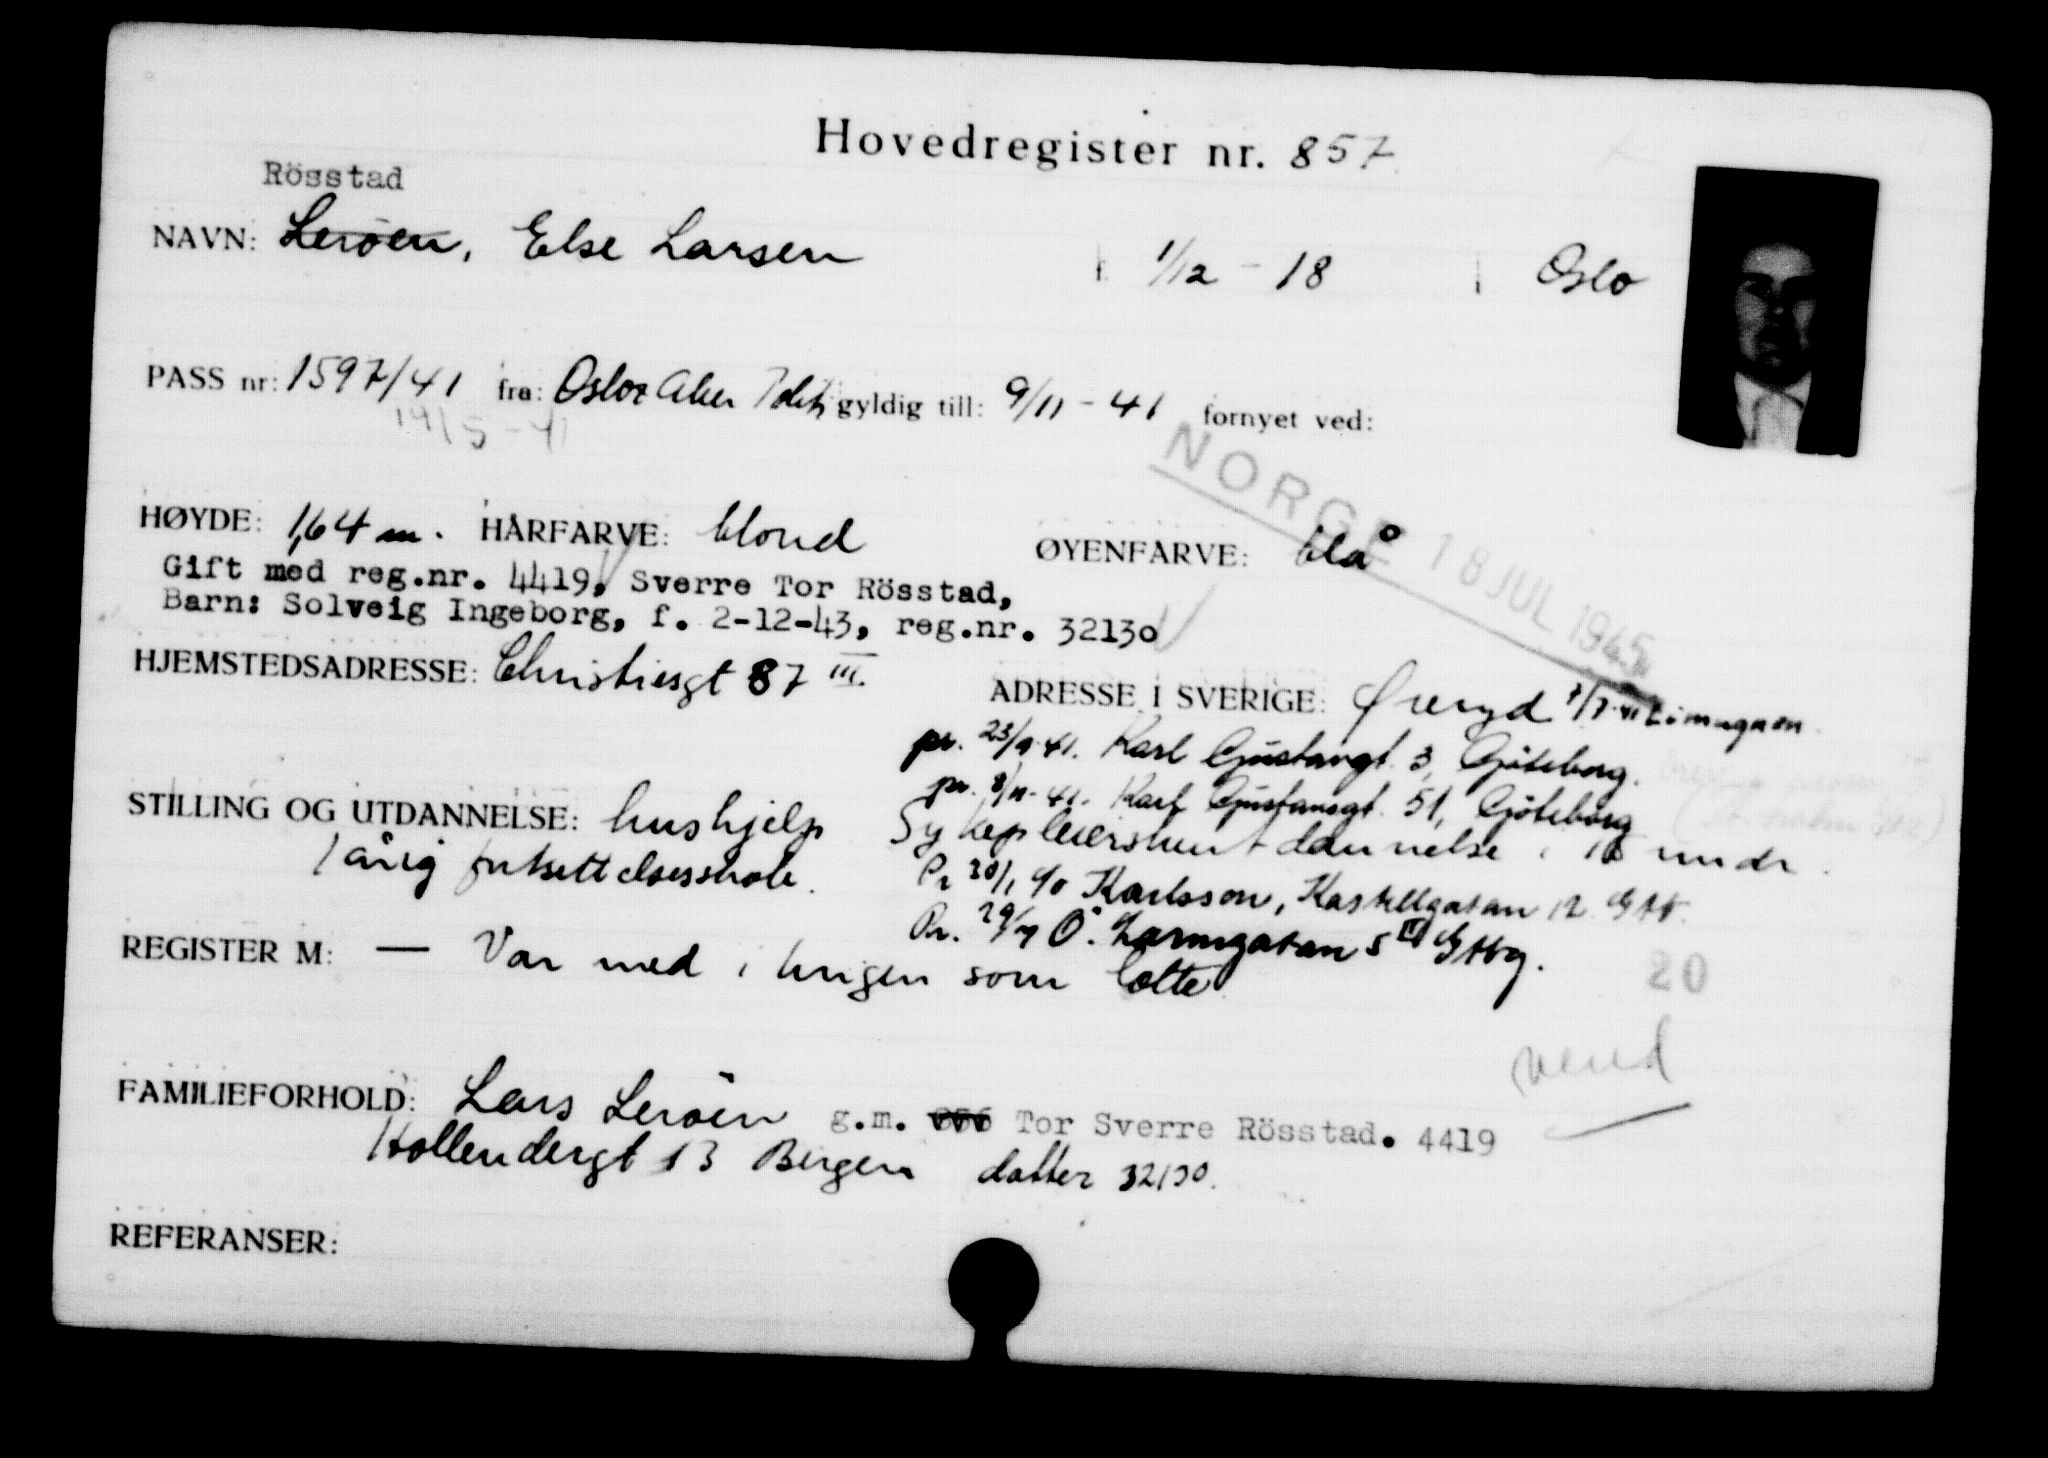 Hovedregister nr. 857
Rösstad
NAVN: Leröen, Else Larsen f. 1/12 - 18 i Oslo
PASS nr: 1597/41 fra: Oslo Aker Politi gyldig till: 9/11 - 41 fornyet ved:
19/5 - 41
NORGE 18 JUL 1945
HØYDE: 1,64 m. HÅRFARVE: blond ØYENFARVE: blå
Gift med reg.nr. 4419, Sverre Tor Rösstad,
Barn: Solveig Ingeborg, f. 2-12-43, reg.nr. 32130
HJEMSTEDSADRESSE: Christiesgt 87 III. ADRESSE I SVERIGE: Øreryd 7/7-41
pr. 23/9-41. Karl Gustavgt. 3, Göteborg.
pr. 8/11-41. Karl Gustavsgt. 51, Göteborg
STILLING OG UTDANNELSE: hushjelp Sykepleierskeutdannelse i 18 mndr.
1 årig fortsettelsesskole. Pr 20/1 c/o Karlsson, Kastellgatan 12 Gtbg.
Pr. 29/4 Ö. Larmgatan 5 II Gtbg.
REGISTER M: — Var med i krigen som Lotte
20
vend
FAMILIEFORHOLD: Lars Leröen g.m. 856 Tor Sverre Rösstad. 4419
Hollendergt 13 Bergen datter 32130.
REFERANSER: